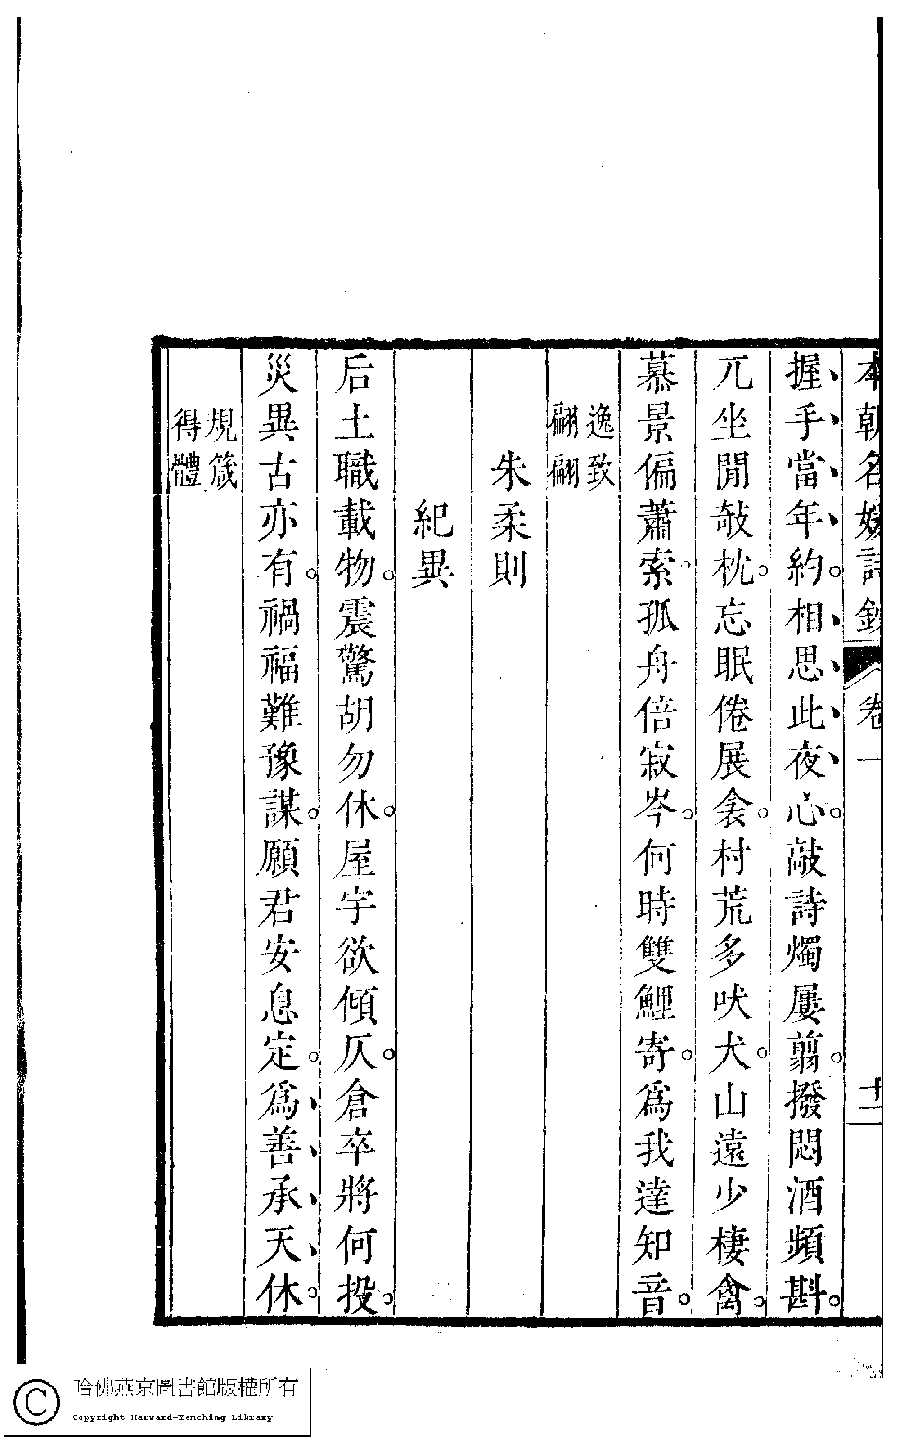 本朝名媛詩鈔 卷一 十二
握手當年約。相思此夜心。敲詩燭屢翦。撥悶酒頻斟。
兀坐閒敧枕。忘眠倦展衾。村荒多吠犬。山遠少棲禽。
慕景偏蕭索。孤舟倍寂岑。何時雙鯉寄。爲我達知音。
逸致
翩翩
朱柔則
紀異
后土職載物。震驚胡勿休。屋宇欲傾仄。倉卒將何投。
災異古亦有。禍福難豫謀。願君安息定。爲善承天休。
規箴
得體
哈佛燕京圖書館版權所有
Copyright Harvard-Yenching Library